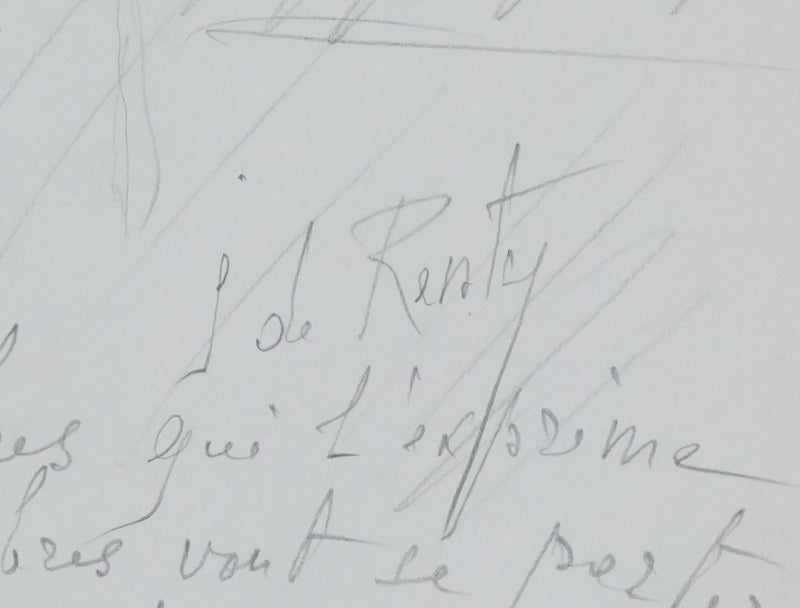 J de Renty
es qui l'exprime
bres vont se part